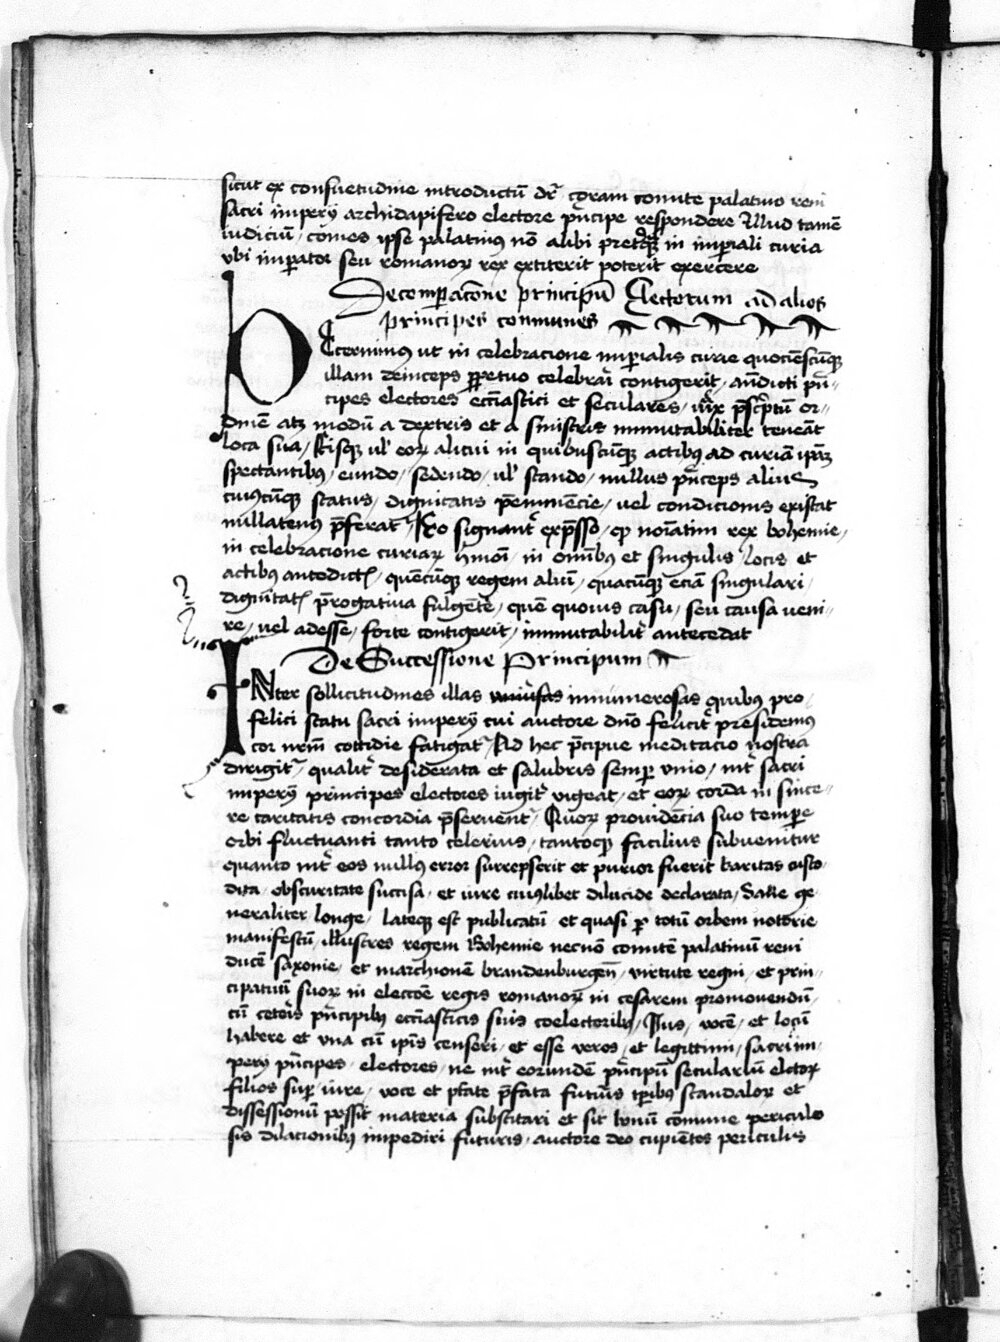 sicut ex consuetudine introductū dr̄ coram comite palatino reni
sacri imperij archidapifero electore p̄ncipe respondere Illud tamē
iudiciū / comes ipse palatinus nō alibi p̄terq̄ in imp̄iali curia
vbi imp̄ator seu romanoꝝ rex extiterit poterit exercere
De comp̄acōne principū Electorum ad alios
principes communes
Decernimus ut in celebracione imp̄ialis curie quociēscūqꝫ
illam deinceps ꝑpetuo celebrari contigerit / an̄dicti pn̄-
cipes electores eccīastici et seculares / iux̄ p̄scptū or-
dinē atqꝫ modū a dextris et a sinistris immutabiliter teneāt
loca sua / Eisqꝫ ul' eoꝝ alicui in quibuscūqꝫ actibꝯ ad curiā ip̄aꝫ
spectantibꝯ / eundo / sedendo / ul' stando / nullus p̄nceps alius
cuiuscūqꝫ status / dignitatis p̄eminēcie / uel condicionis existat
nullatenus p̄ferat̄ / Eo signant̄ exp̄sso / qꝫ noīatim rex bohemie /
in celebracione curiaꝝ hmōi / in omībꝯ et singulis locis et
actibus antedictꝭ / quēcūqꝫ regem aliū / quacūqꝫ eciā singulari /
dignitatꝭ p̄rogatiua fulgentē / quē quouis casu / seu causa ueni-
re / uel adesse / forte contigerit / immutabilit̄ antecedat
De Successione Principum
INter sollicitudines illas innumerosas quibꝯ pro
felici statu sacri imperij cui auctore dn̄o felicit̄ presidemus
cor nr̄m cottidie fatigat̄ / Ad hec p̄cipue meditacio nostra
dirigit̄ / qualit̄ desiderata et salubris semper vnio / int̄ sacri
imperij principes electores iugit̄ vigeat / et eoꝝ corda in since-
re caritatis concordia p̄seruent̄ / Quoꝝ prouidēcia suo tempore
orbi fluctuanti tanto celerius / tantoqꝫ facilius subuenitur
quanto int̄ eos nullꝯ error surrepserit et purior fuerit karitas custo-
dita / obscuritate succisa / et iure cuiuslibet dilucide declarata / Sane ge-
neraliter longe / lateqꝫ est publicatū / et quasi ꝑ totū orbem notorie
manifestū / illustres regem Bohemie necnō comitē palatinū reni
ducē saxonie / et marchionē brandenburgeñ / virtute regni / et prin-
cipatuū suoꝝ in eleccōe regis romanoꝝ in cesarem promouendū /
cū ceteris p̄ncipibꝯ eccīasticis suis coelectoribꝯ / Jus / vocē / et locū
habere et vna cū ip̄is censeri / et esse veros / et legittimi / sacri im-
perij p̄ncipes / electores / ne int̄ eorundē p̄ncipū seculariū elctoꝝ
filios sup̄ iure / voce et ptāte p̄fata futuris tꝑibus scandaloꝝ et
dissessionū possit materia suscitari et sit bonū cōmune periculo
sis dilacionibꝯ impediri futuris / auctore deo cupiētes periculis